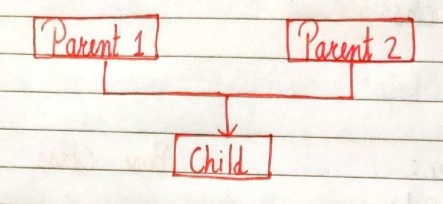 Parent 1 Parent 2
Child